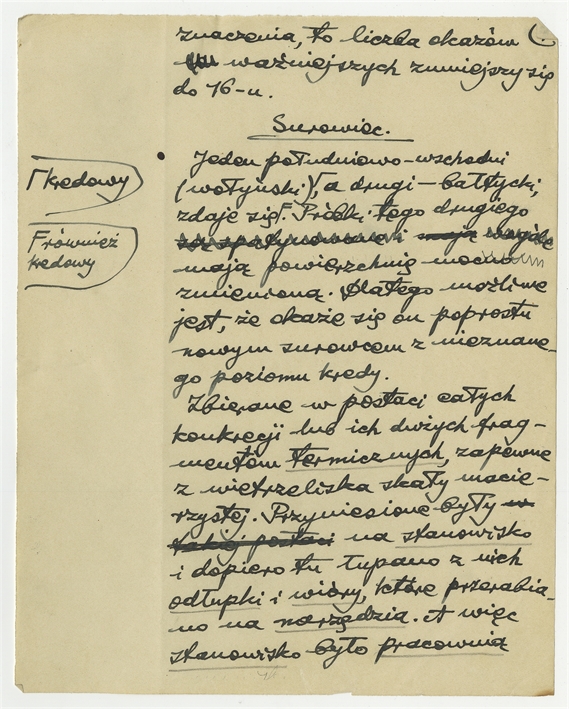 znaczenia, to liczba okazów
ważniejszych zmniejszy się
do 16-u.
Surowiec.
Γ kredowy
Jeden południowo-wschodni
(wołyński)Γ, a drugi – bałtycki,
zdaje sięF. Próbki tego drugiego
F również
kredowy
są spatynowane i mają
mają powierzchnię mocno
zmienioną. Dlatego możliwe
jest, że okaże się on poprostu
nowym surowcem z nieznane-
go poziomu kredy.
Zbierane w postaci całych
konkrecji lub ich dużych frag-
mentów termicznych, zapewne
z wietrzeliska skały macie-
rzystej. Przyniesione były w
takiej postaci na stanowisko
i dopiero tu łupano z nich
odłupki i wióry, które przerabia-
no na narzędzia. A więc
stanowisko było pracownią